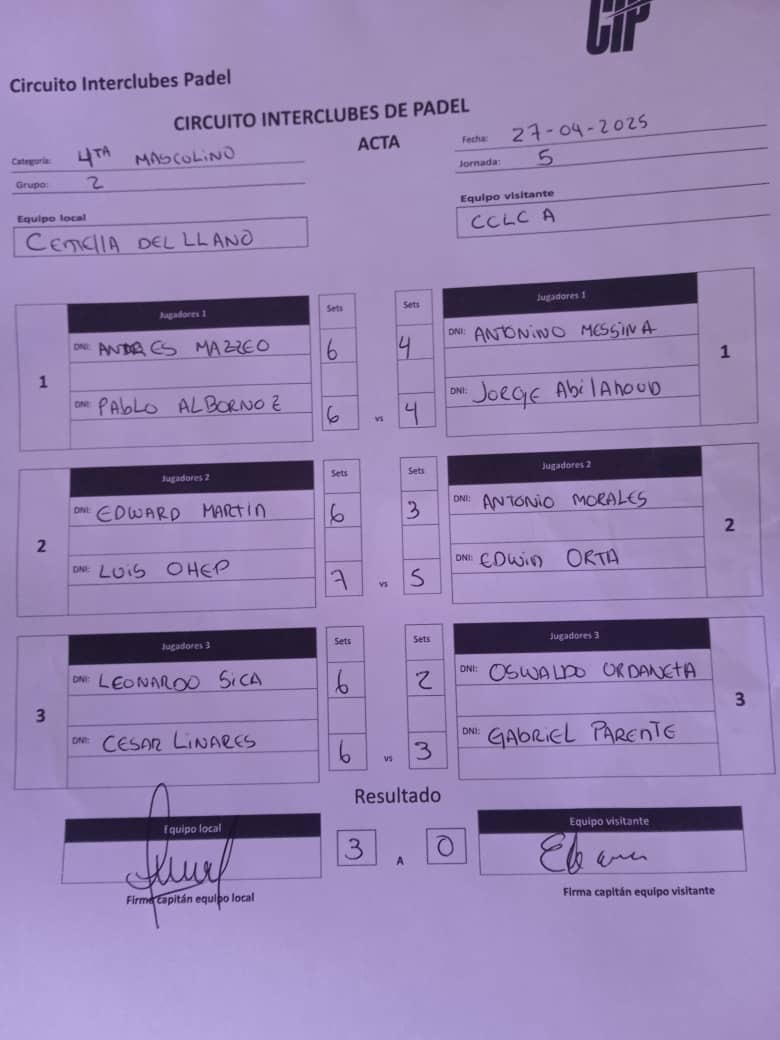 CIP
Circuito Interclubes Padel
CIRCUITO INTERCLUBES DE PADEL
ACTA
Categoría: 4TA MASCOLINO
Grupo: 2
Fecha: 27-04-2025
Jornada: 5
Equipo local
CEMELLA DEL LLANO
Equipo visitante
CCLC A
1
Jugadores 1
Sets
Sets
Jugadores 1
1
DNI: ANDRES MAZZEO 6 4 DNI: ANTONINO MESSINA
DNI: PABLO ALBORNOZ 6 vs 4 DNI: JORGE AbilAHOUD
2
Jugadores 2
Sets
Sets
Jugadores 2
2
DNI: EDWARD MARTIN 6 3 DNI: ANTONIO MORALES
DNI: LUIS OHEP 7 vs 5 DNI: EDWIN ORTA
3
Jugadores 3
Sets
Sets
Jugadores 3
3
DNI: LEONARDO SICA 6 2 DNI: OSWALDO URDANETA
DNI: CESAR LINARES 6 vs 3 DNI: GABRIEL PARENTE
Resultado
Equipo local
3 A 0
Equipo visitante
Firma capitán equipo local
Firma capitán equipo visitante